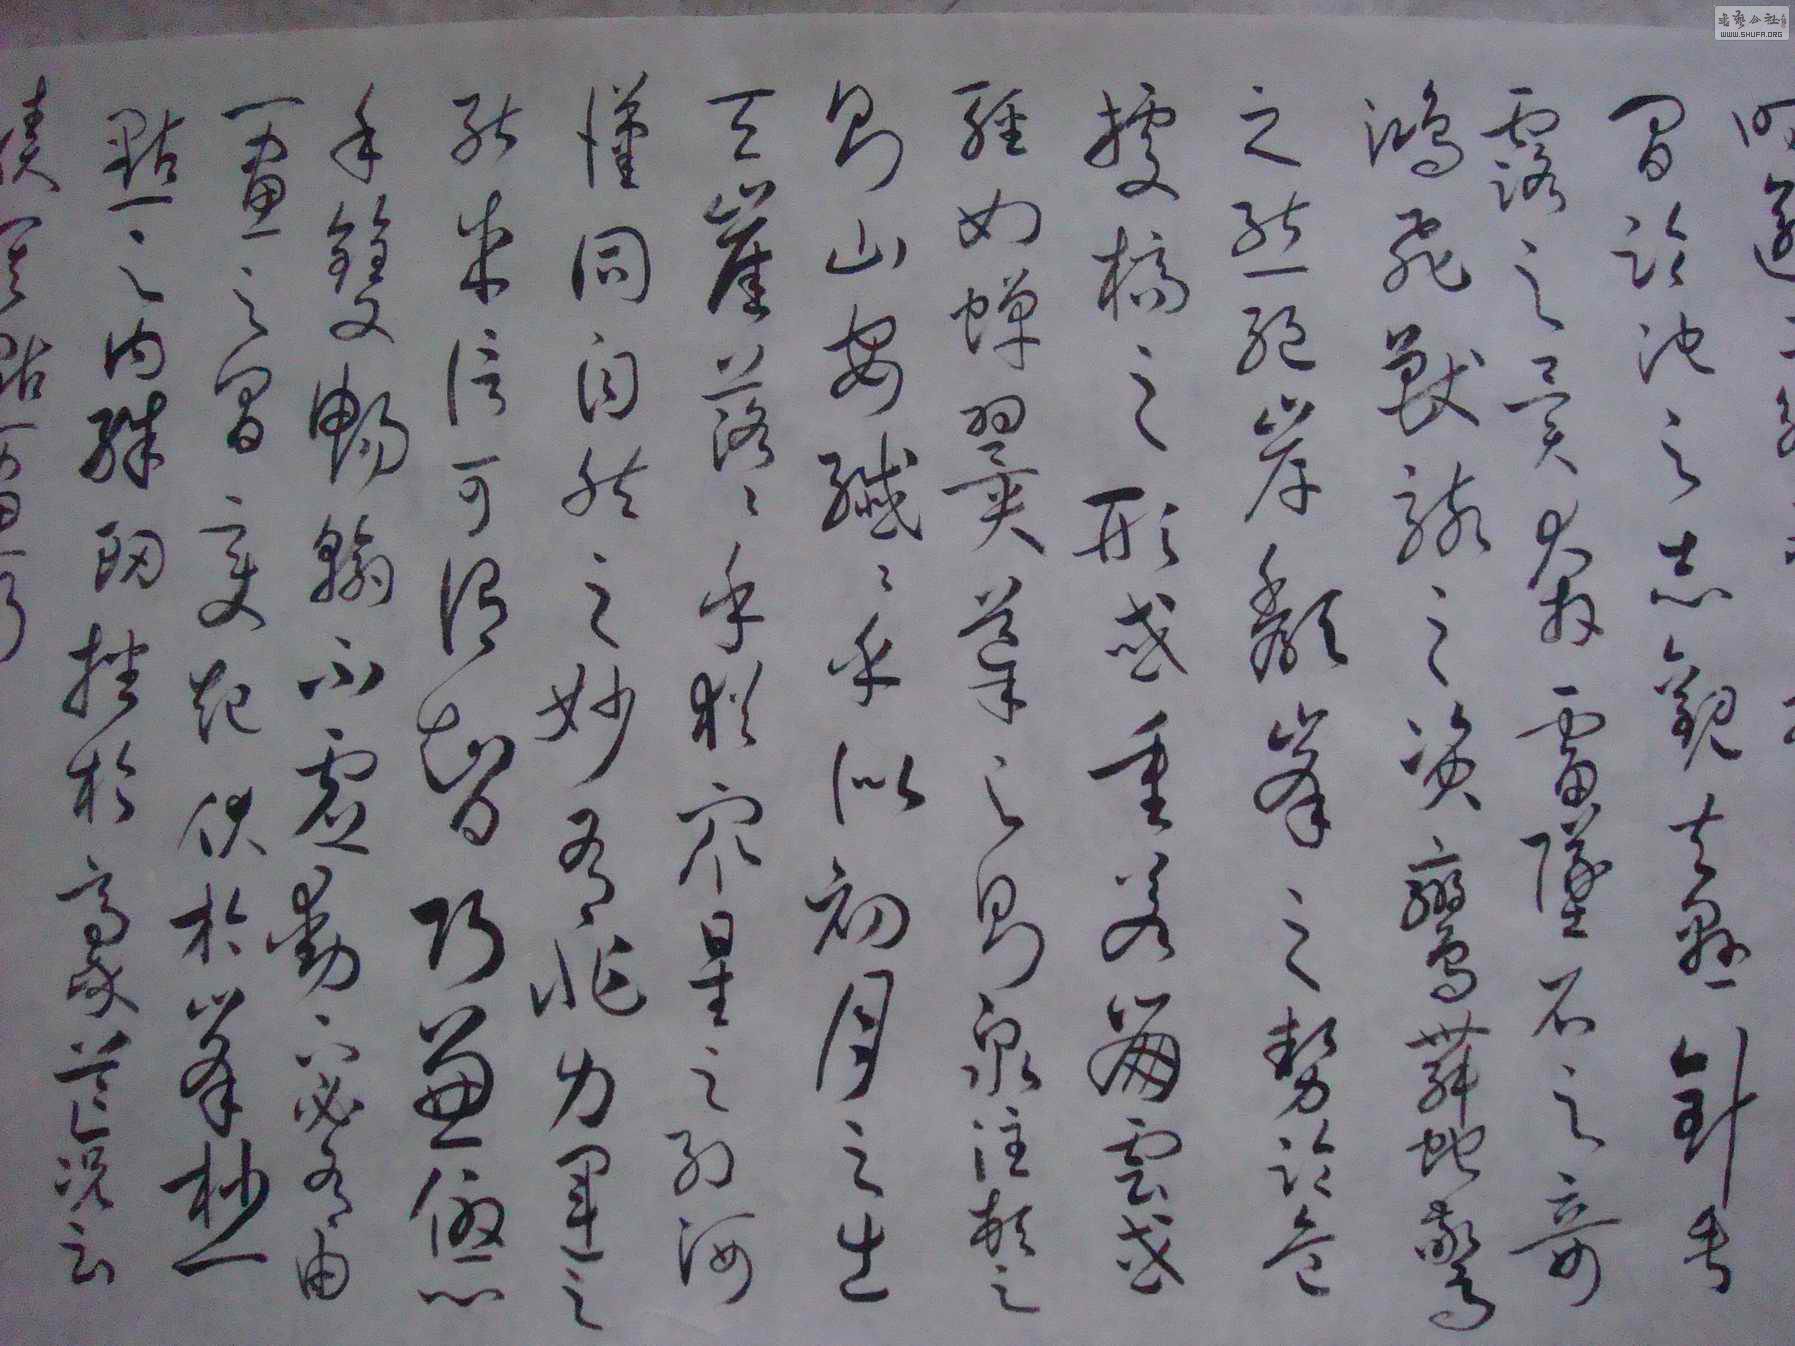 時逾二紀
間臨池之志觀夫懸針垂
露之異奔雷墜石之奇
鴻飛獸駭之資鸞舞蛇驚
之態絕岸頹峯之勢臨危
據槁之形或重若崩雲或
輕如蟬翼導之則泉注頓之
則山安纖〻乎似初月之出
天崖落〻乎猶衆星之列河
漢同自然之妙有非力運之
能成信可謂智巧兼優心
手雙暢翰不虛動下必有由
一畫之間變起伏於峯杪一
點之內殊衂挫於豪芒況云
積其點畫乃
書藝公社
WWW.SHUFA.ORG